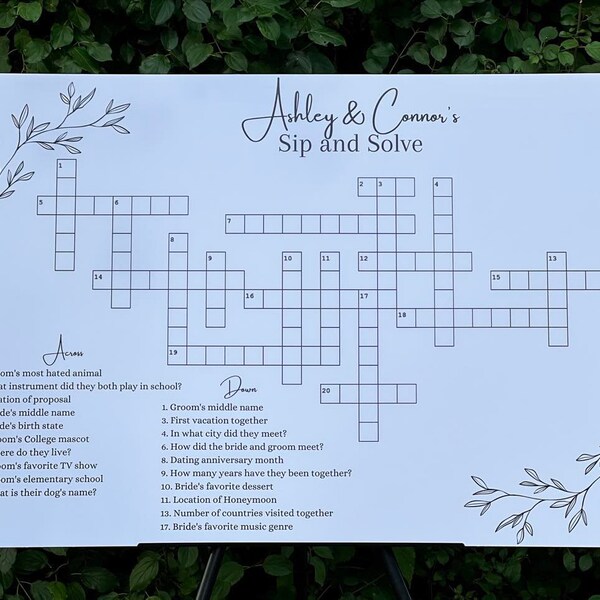 Ashley & Connor's
Sip and Solve
1
2 3 4
5 6
7
8
9 10 11 12 13
14 15
16 17
18
19
20
Across
oom's most hated animal
at instrument did they both play in school?
ation of proposal
de's middle name
de's birth state
oom's College mascot
ere do they live?
oom's favorite TV show
oom's elementary school
at is their dog's name?
Down
1. Groom's middle name
3. First vacation together
4. In what city did they meet?
6. How did the bride and groom meet?
8. Dating anniversary month
9. How many years have they been together?
10. Bride's favorite dessert
11. Location of Honeymoon
13. Number of countries visited together
17. Bride's favorite music genre